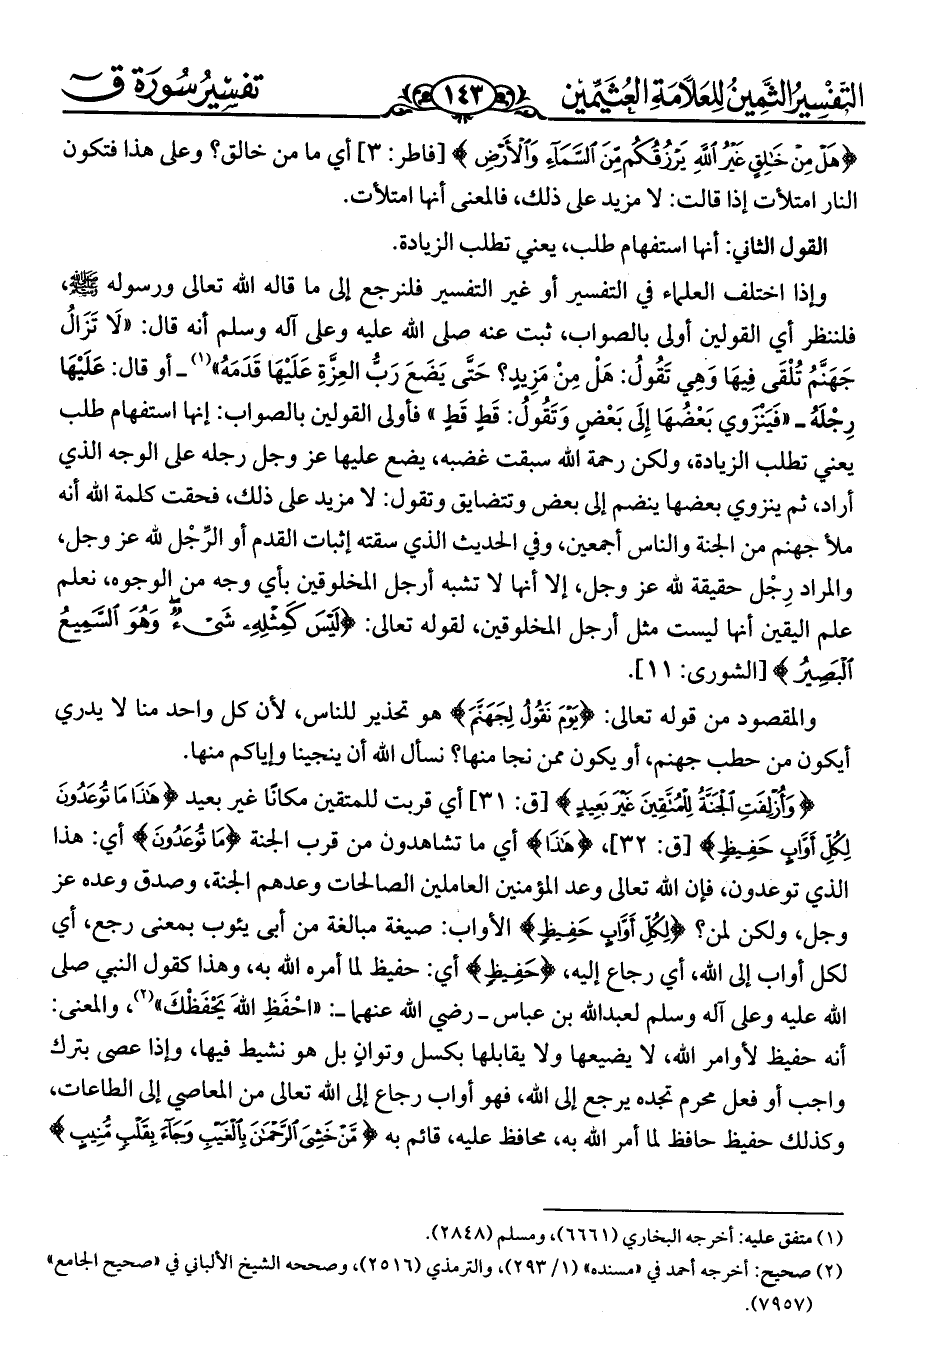 التفسير الثمين للعلامة العثيمين
١٤٣
تفسير سورة ق
﴿هَلْ مِنْ خَٰلِقٍ غَيْرُ ٱللَّهِ يَرْزُقُكُم مِّنَ ٱلسَّمَآءِ وَٱلْأَرْضِ﴾ [فاطر: ٣] أي ما من خالق؟ وعلى هذا فتكون
النار امتلأت إذا قالت: لا مزيد على ذلك، فالمعنى أنها امتلأت.
القول الثاني: أنها استفهام طلب، يعني تطلب الزيادة.
وإذا اختلف العلماء في التفسير أو غير التفسير فلنرجع إلى ما قاله الله تعالى ورسوله ﷺ،
فلننظر أي القولين أولى بالصواب، ثبت عنه صلى الله عليه وعلى آله وسلم أنه قال: «لَا تَزَالُ
جَهَنَّمُ تُلْقَى فِيهَا وَهِي تَقُولُ: هَلْ مِنْ مَزِيدٍ؟ حَتَّى يَضَعَ رَبُّ العِزَّةِ عَلَيْهَا قَدَمَهُ»(١) ـ أو قال: عَلَيْهَا
رِجْلَهُ ـ «فَيَنْزَوِي بَعْضُهَا إِلَى بَعْضٍ وَتَقُولُ: قَطٍ قَطٍ» فأولى القولين بالصواب: إنها استفهام طلب
يعني تطلب الزيادة، ولكن رحمة الله سبقت غضبه، يضع عليها عز وجل رجله على الوجه الذي
أراد، ثم ينزوي بعضها ينضم إلى بعض وتتضايق وتقول: لا مزيد على ذلك، فحقت كلمة الله أنه
ملأ جهنم من الجنة والناس أجمعين، وفي الحديث الذي سقته إثبات القدم أو الرِّجْل لله عز وجل،
والمراد رِجْل حقيقة لله عز وجل، إلا أنها لا تشبه أرجل المخلوقين بأي وجه من الوجوه، نعلم
علم اليقين أنها ليست مثل أرجل المخلوقين، لقوله تعالى: ﴿لَيْسَ كَمِثْلِهِۦ شَىْءٌ ۖ وَهُوَ ٱلسَّمِيعُ
ٱلْبَصِيرُ﴾ [الشورى: ١١].
والمقصود من قوله تعالى: ﴿يَوْمَ نَقُولُ لِجَهَنَّمَ﴾ هو تحذير للناس، لأن كل واحد منا لا يدري
أيكون من حطب جهنم، أو يكون ممن نجا منها؟ نسأل الله أن ينجينا وإياكم منها.
﴿وَأُزْلِفَتِ ٱلْجَنَّةُ لِلْمُتَّقِينَ غَيْرَ بَعِيدٍ﴾ [ق: ٣١] أي قربت للمتقين مكانًا غير بعيد ﴿هَٰذَا مَا تُوعَدُونَ
لِكُلِّ أَوَّابٍ حَفِيظٍ﴾ [ق: ٣٢]، ﴿هَٰذَا﴾ أي ما تشاهدون من قرب الجنة ﴿مَا تُوعَدُونَ﴾ أي: هذا
الذي توعدون، فإن الله تعالى وعد المؤمنين العاملين الصالحات وعدهم الجنة، وصدق وعده عز
وجل، ولكن لمن؟ ﴿لِكُلِّ أَوَّابٍ حَفِيظٍ﴾ الأواب: صيغة مبالغة من أبى يئوب بمعنى رجع، أي
لكل أواب إلى الله، أي رجاع إليه، ﴿حَفِيظٍ﴾ أي: حفيظ لما أمره الله به، وهذا كقول النبي صلى
الله عليه وعلى آله وسلم لعبدالله بن عباس ـ رضي الله عنهما ـ: «احْفَظِ اللهَ يَحْفَظْكَ»(٢)، والمعنى:
أنه حفيظ لأوامر الله، لا يضيعها ولا يقابلها بكسل وتوانٍ بل هو نشيط فيها، وإذا عصى بترك
واجب أو فعل محرم تجده يرجع إلى الله، فهو أواب رجاع إلى الله تعالى من المعاصي إلى الطاعات،
وكذلك حفيظ حافظ لما أمر الله به، محافظ عليه، قائم به ﴿مَّنْ خَشِىَ ٱلرَّحْمَٰنَ بِٱلْغَيْبِ وَجَآءَ بِقَلْبٍ مُّنِيبٍ﴾
(١) متفق عليه: أخرجه البخاري (٦٦٦١)، ومسلم (٢٨٤٨).
(٢) صحيح: أخرجه أحمد في «مسنده» (١/ ٢٩٣)، والترمذي (٢٥١٦)، وصححه الشيخ الألباني في «صحيح الجامع»
(٧٩٥٧).